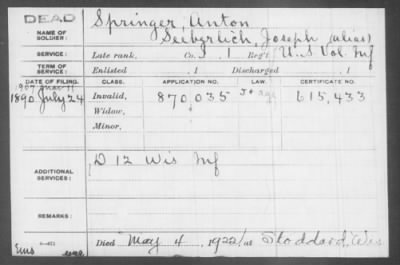 DEAD
NAME OF SOLDIER: Springer, Anton
Seiberlich, Joseph (alias)
SERVICE: Late rank, Co. I, 1 Reg't U.S. Vol. Inf
TERM OF SERVICE: Enlisted , 1 Discharged , 1
DATE OF FILING. CLASS. APPLICATION NO. LAW. CERTIFICATE NO.
1890 July 24 Invalid, 870,035 615,433
Widow,
Minor,
ADDITIONAL SERVICES: D 12 Wis Inf
REMARKS:
Died May 4, 1922, at Stoddard, Wis